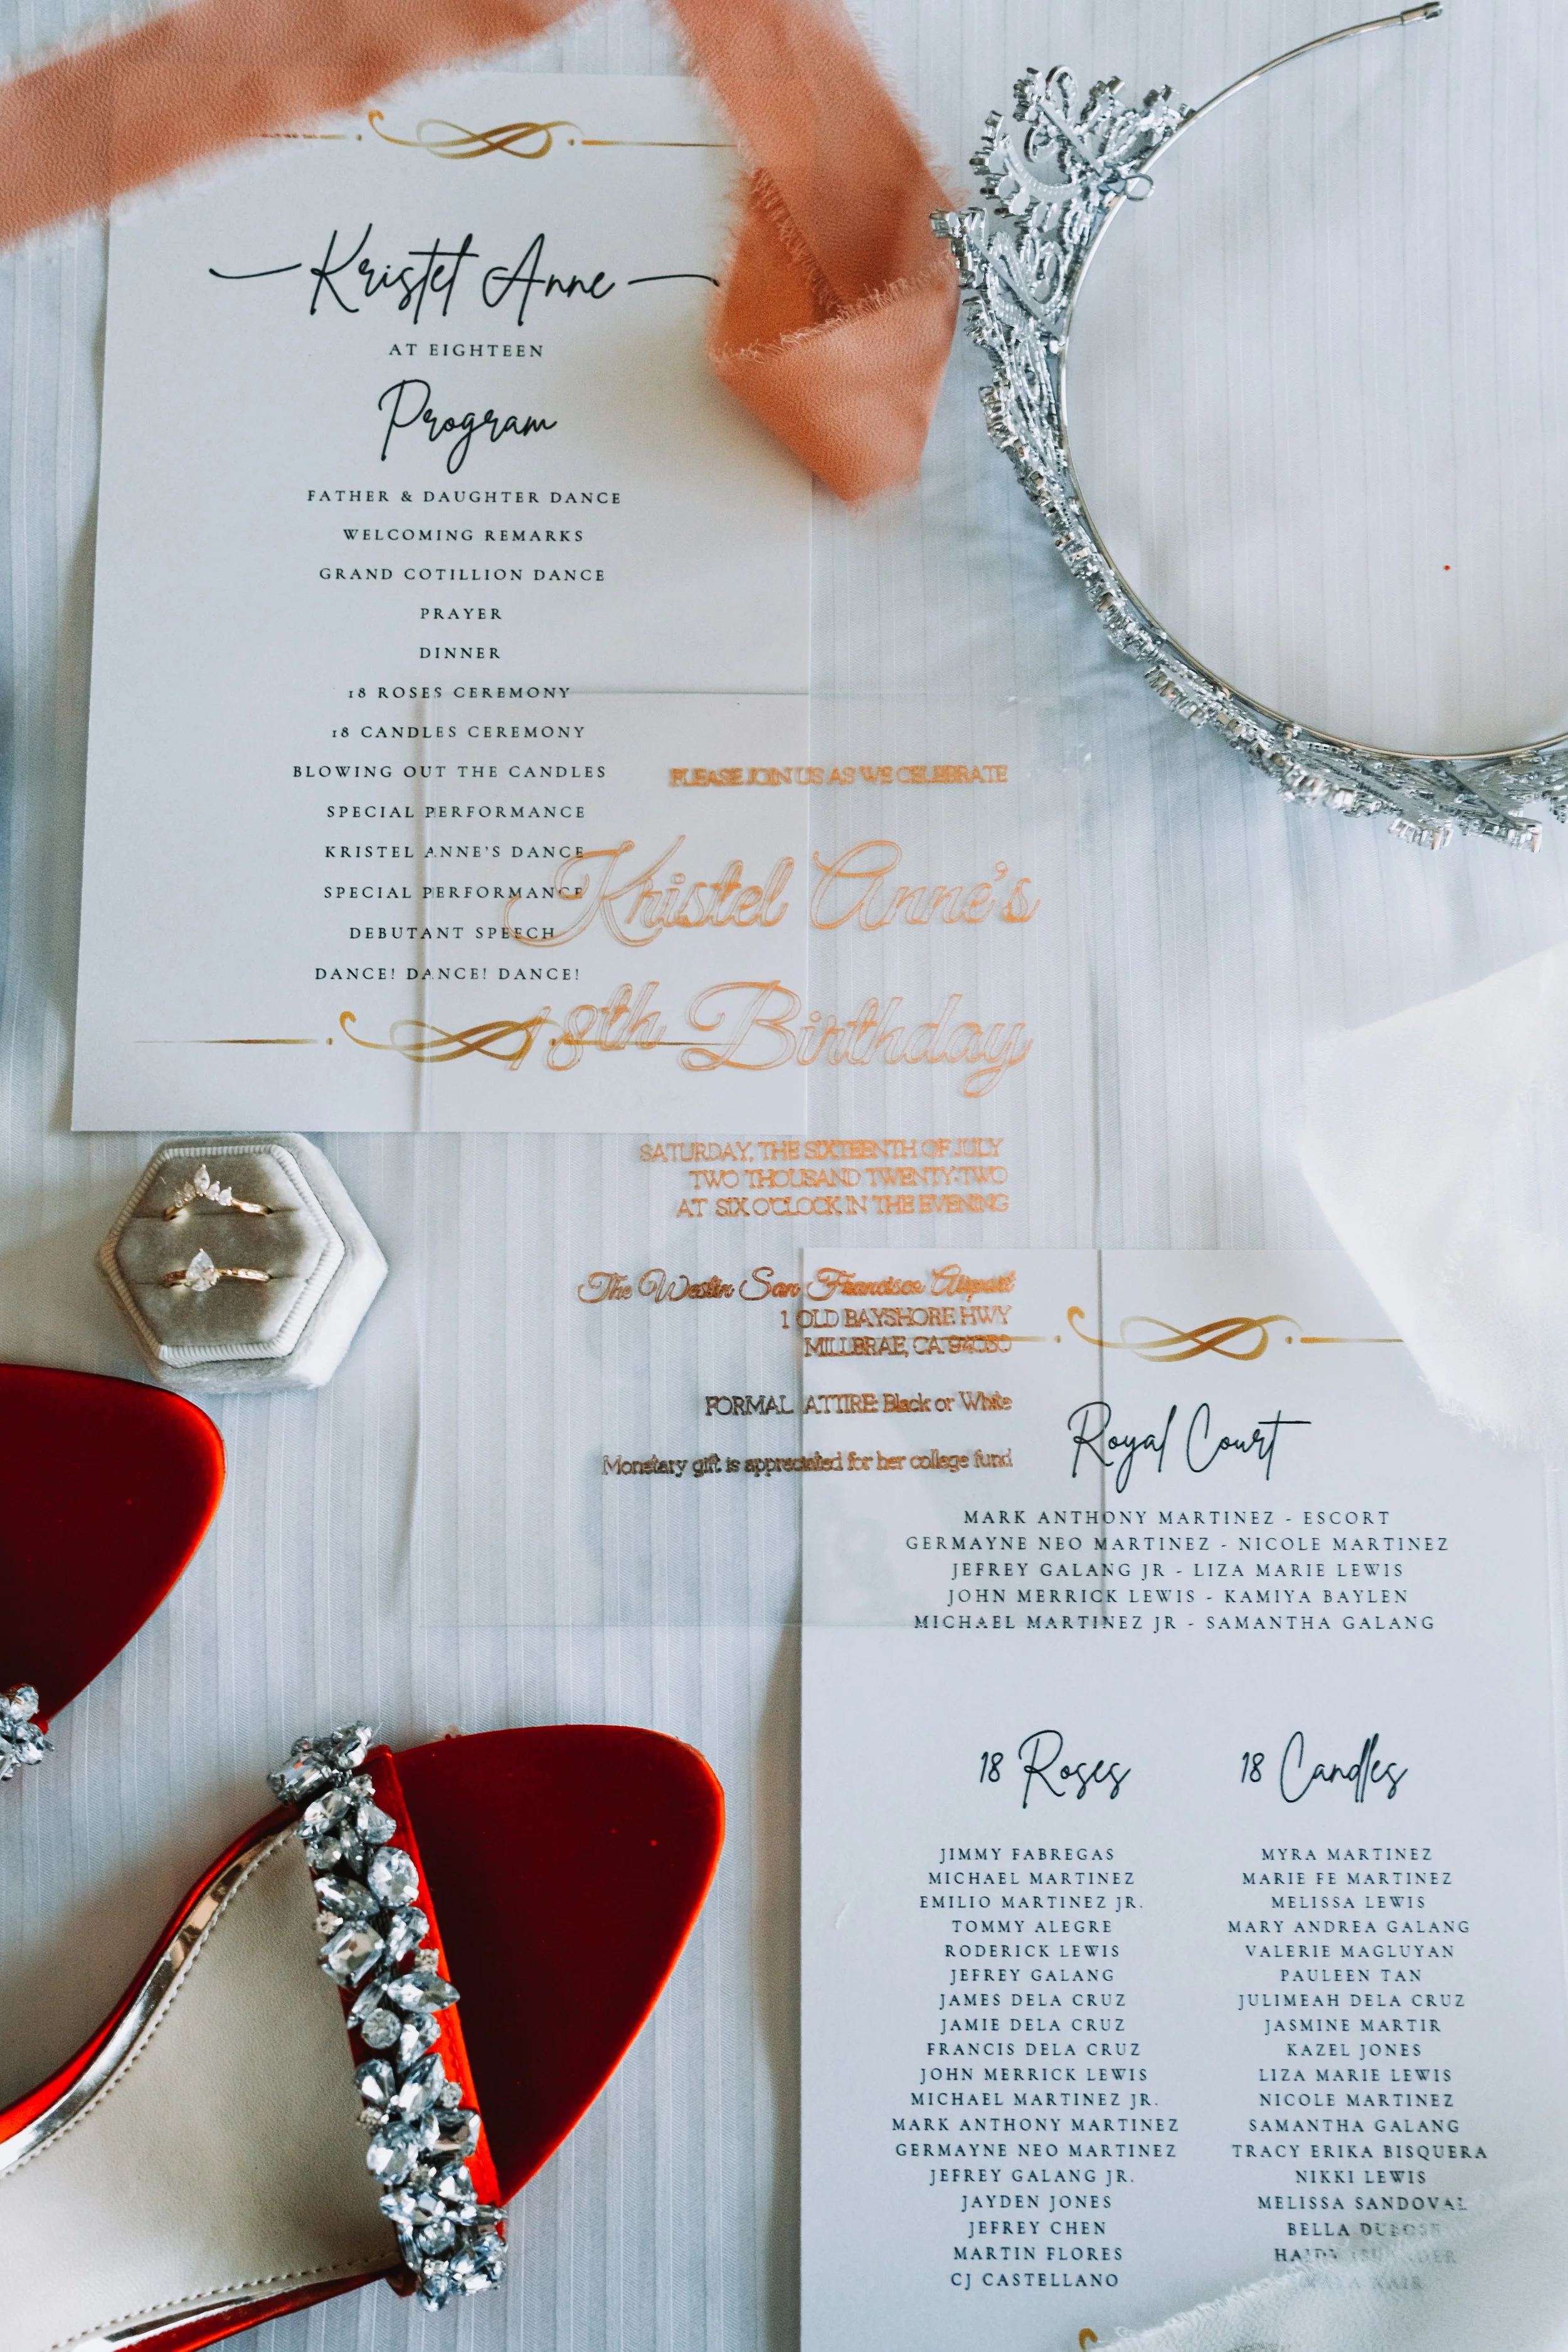 Kristel Anne
AT EIGHTEEN
Program
FATHER & DAUGHTER DANCE
WELCOMING REMARKS
GRAND COTILLION DANCE
PRAYER
DINNER
18 ROSES CEREMONY
18 CANDLES CEREMONY
BLOWING OUT THE CANDLES
SPECIAL PERFORMANCE
KRISTEL ANNE'S DANCE
SPECIAL PERFORMANCE
DEBUTANT SPEECH
DANCE! DANCE! DANCE!
PLEASE JOIN US AS WE CELEBRATE
Kristel Anne's
18th Birthday
SATURDAY, THE SIXTEENTH OF JULY
TWO THOUSAND TWENTY-TWO
AT SIX O'CLOCK IN THE EVENING
The Westin San Francisco Airport
1 OLD BAYSHORE HWY
MILLBRAE, CA 94030
FORMAL ATTIRE: Black or White
Monetary gift is appreciated for her college fund
Royal Court
MARK ANTHONY MARTINEZ - ESCORT
GERMAYNE NEO MARTINEZ - NICOLE MARTINEZ
JEFREY GALANG JR - LIZA MARIE LEWIS
JOHN MERRICK LEWIS - KAMIYA BAYLEN
MICHAEL MARTINEZ JR - SAMANTHA GALANG
18 Roses
JIMMY FABREGAS
MICHAEL MARTINEZ
EMILIO MARTINEZ JR.
TOMMY ALEGRE
RODERICK LEWIS
JEFREY GALANG
JAMES DELA CRUZ
JAMIE DELA CRUZ
FRANCIS DELA CRUZ
JOHN MERRICK LEWIS
MICHAEL MARTINEZ JR.
MARK ANTHONY MARTINEZ
GERMAYNE NEO MARTINEZ
JEFREY GALANG JR.
JAYDEN JONES
JEFREY CHEN
MARTIN FLORES
CJ CASTELLANO
18 Candles
MYRA MARTINEZ
MARIE FE MARTINEZ
MELISSA LEWIS
MARY ANDREA GALANG
VALERIE MAGLUYAN
PAULEEN TAN
JULIMEAH DELA CRUZ
JASMINE MARTIR
KAZEL JONES
LIZA MARIE LEWIS
NICOLE MARTINEZ
SAMANTHA GALANG
TRACY ERIKA BISQUERA
NIKKI LEWIS
MELISSA SANDOVAL
BELLA DUBOSE